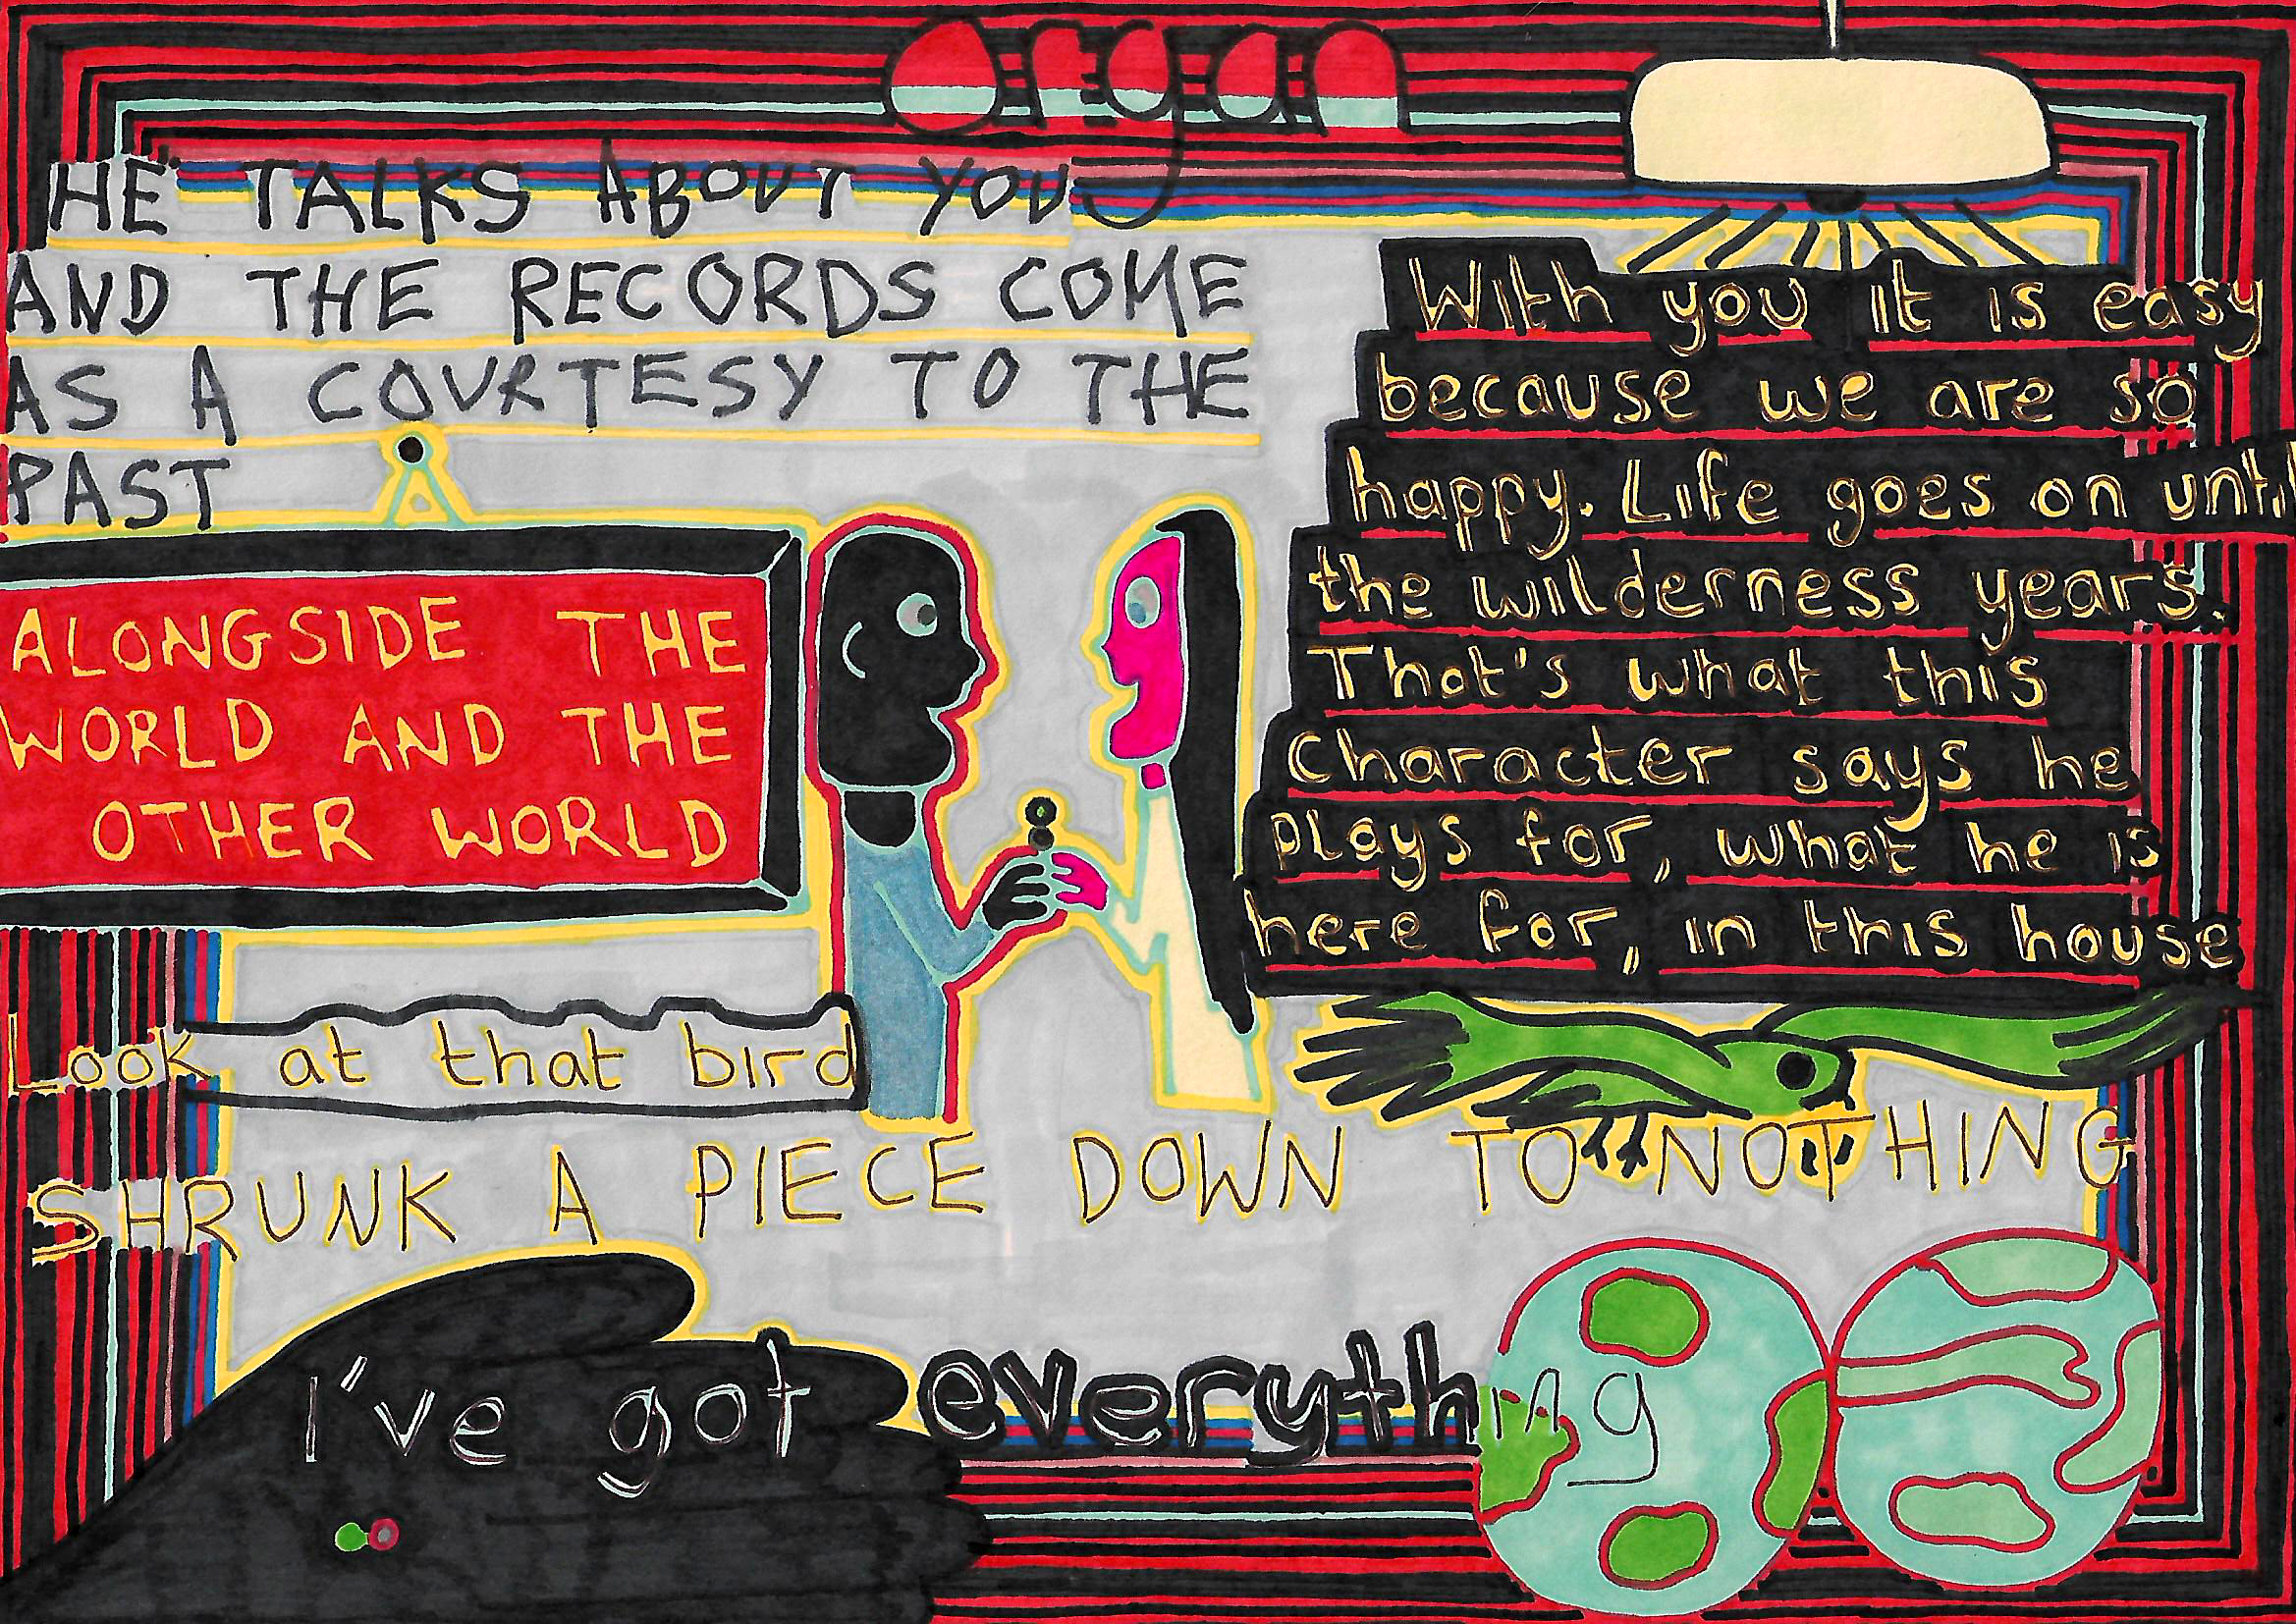 organ
HE TALKS ABOUT YOU
AND THE RECORDS COME
AS A COURTESY TO THE
PAST
ALONGSIDE THE
WORLD AND THE
OTHER WORLD
With you it is easy
because we are so
happy. Life goes on until
the wilderness years.
That's what this
character says he
plays for, what he is
here for, in this house
Look at that bird
SHRUNK A PIECE DOWN TO NOTHING
I've got everything